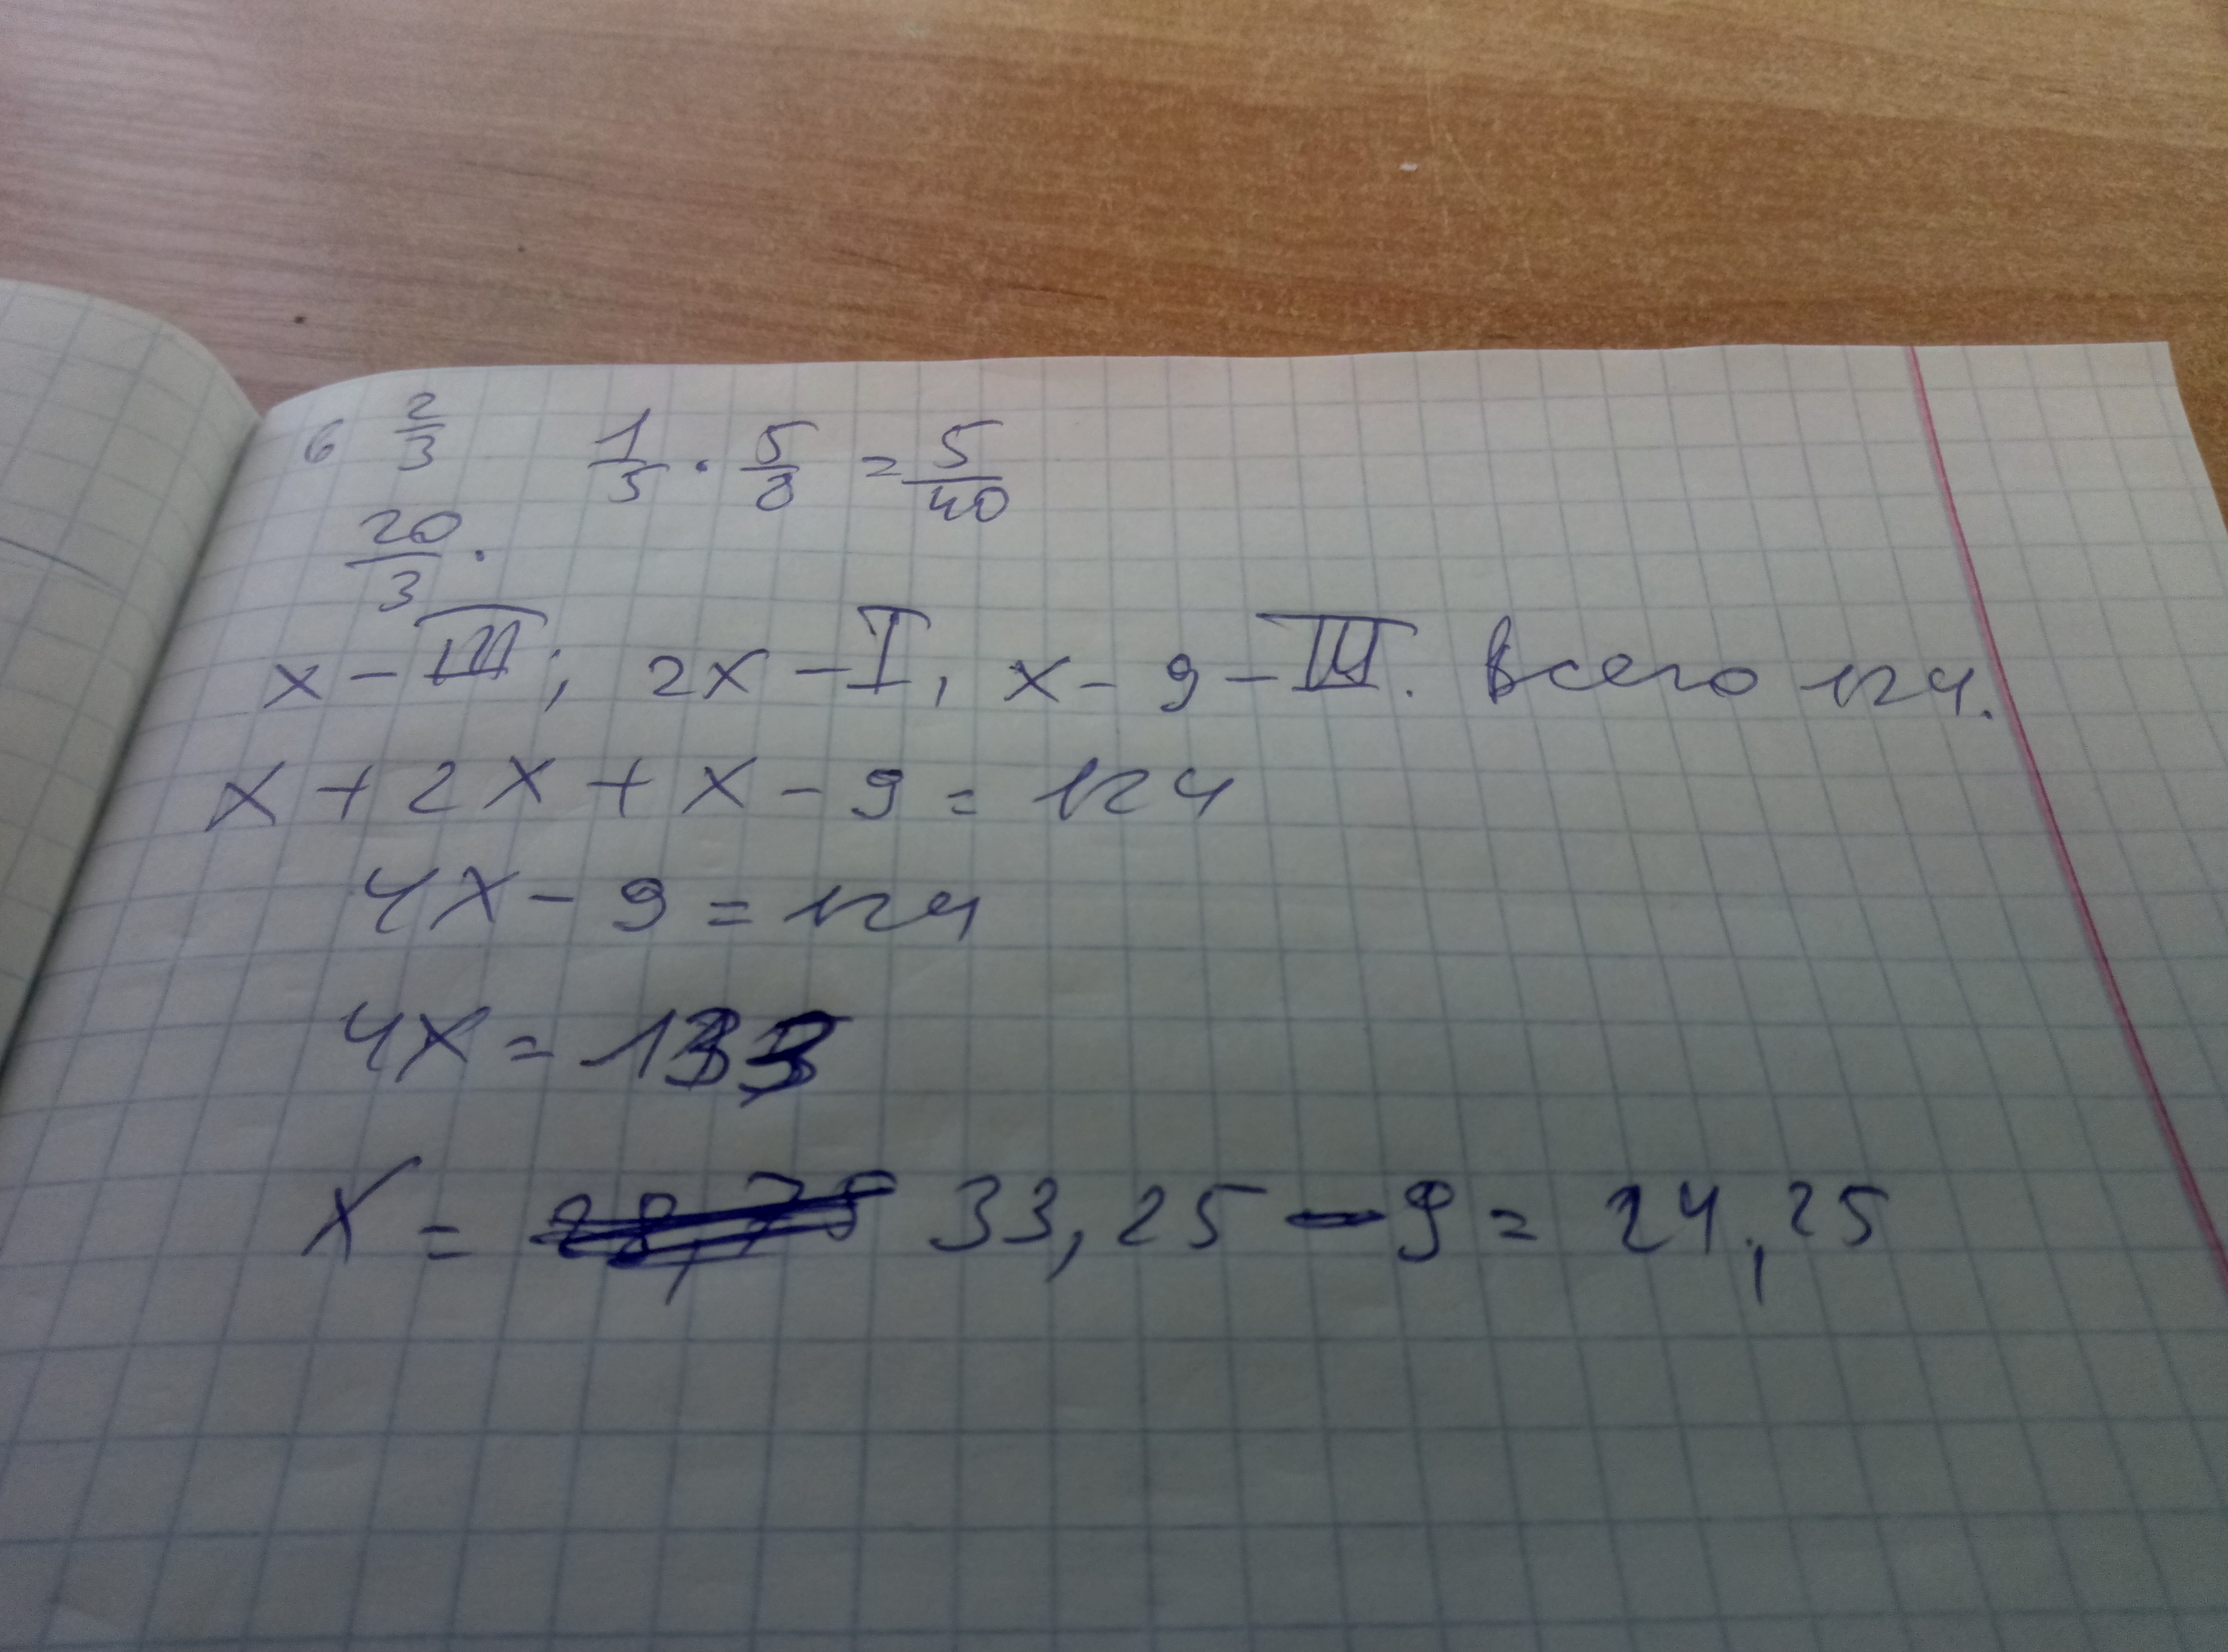 6 2/3 1/5 · 5/8 = 5/40
20/3 ·
x - III; 2x - I, x - 9 - III. Всего 124.
x + 2x + x - 9 = 124
4x - 9 = 124
4x = 133
x = 33,25 - 9 = 24,25